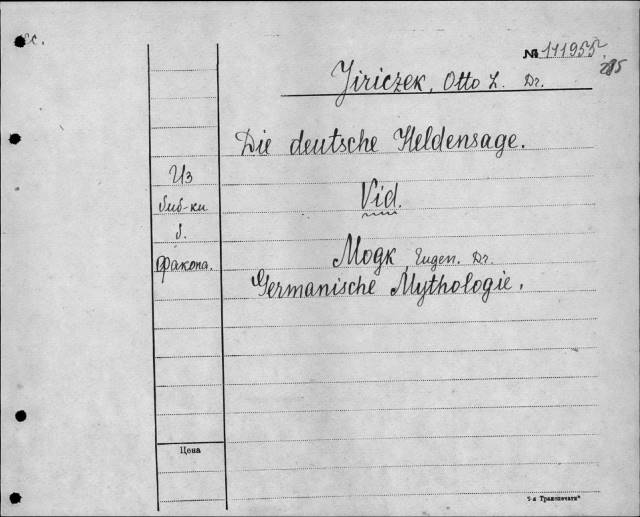 № 111955
285
Jiriczek, Otto L. Dr.
Die deutsche Heldensage.
Из
биб-ки
б.
Факона.
Vid.
Mogk, Eugen. Dr.
Germanische Mythologie.
Цена